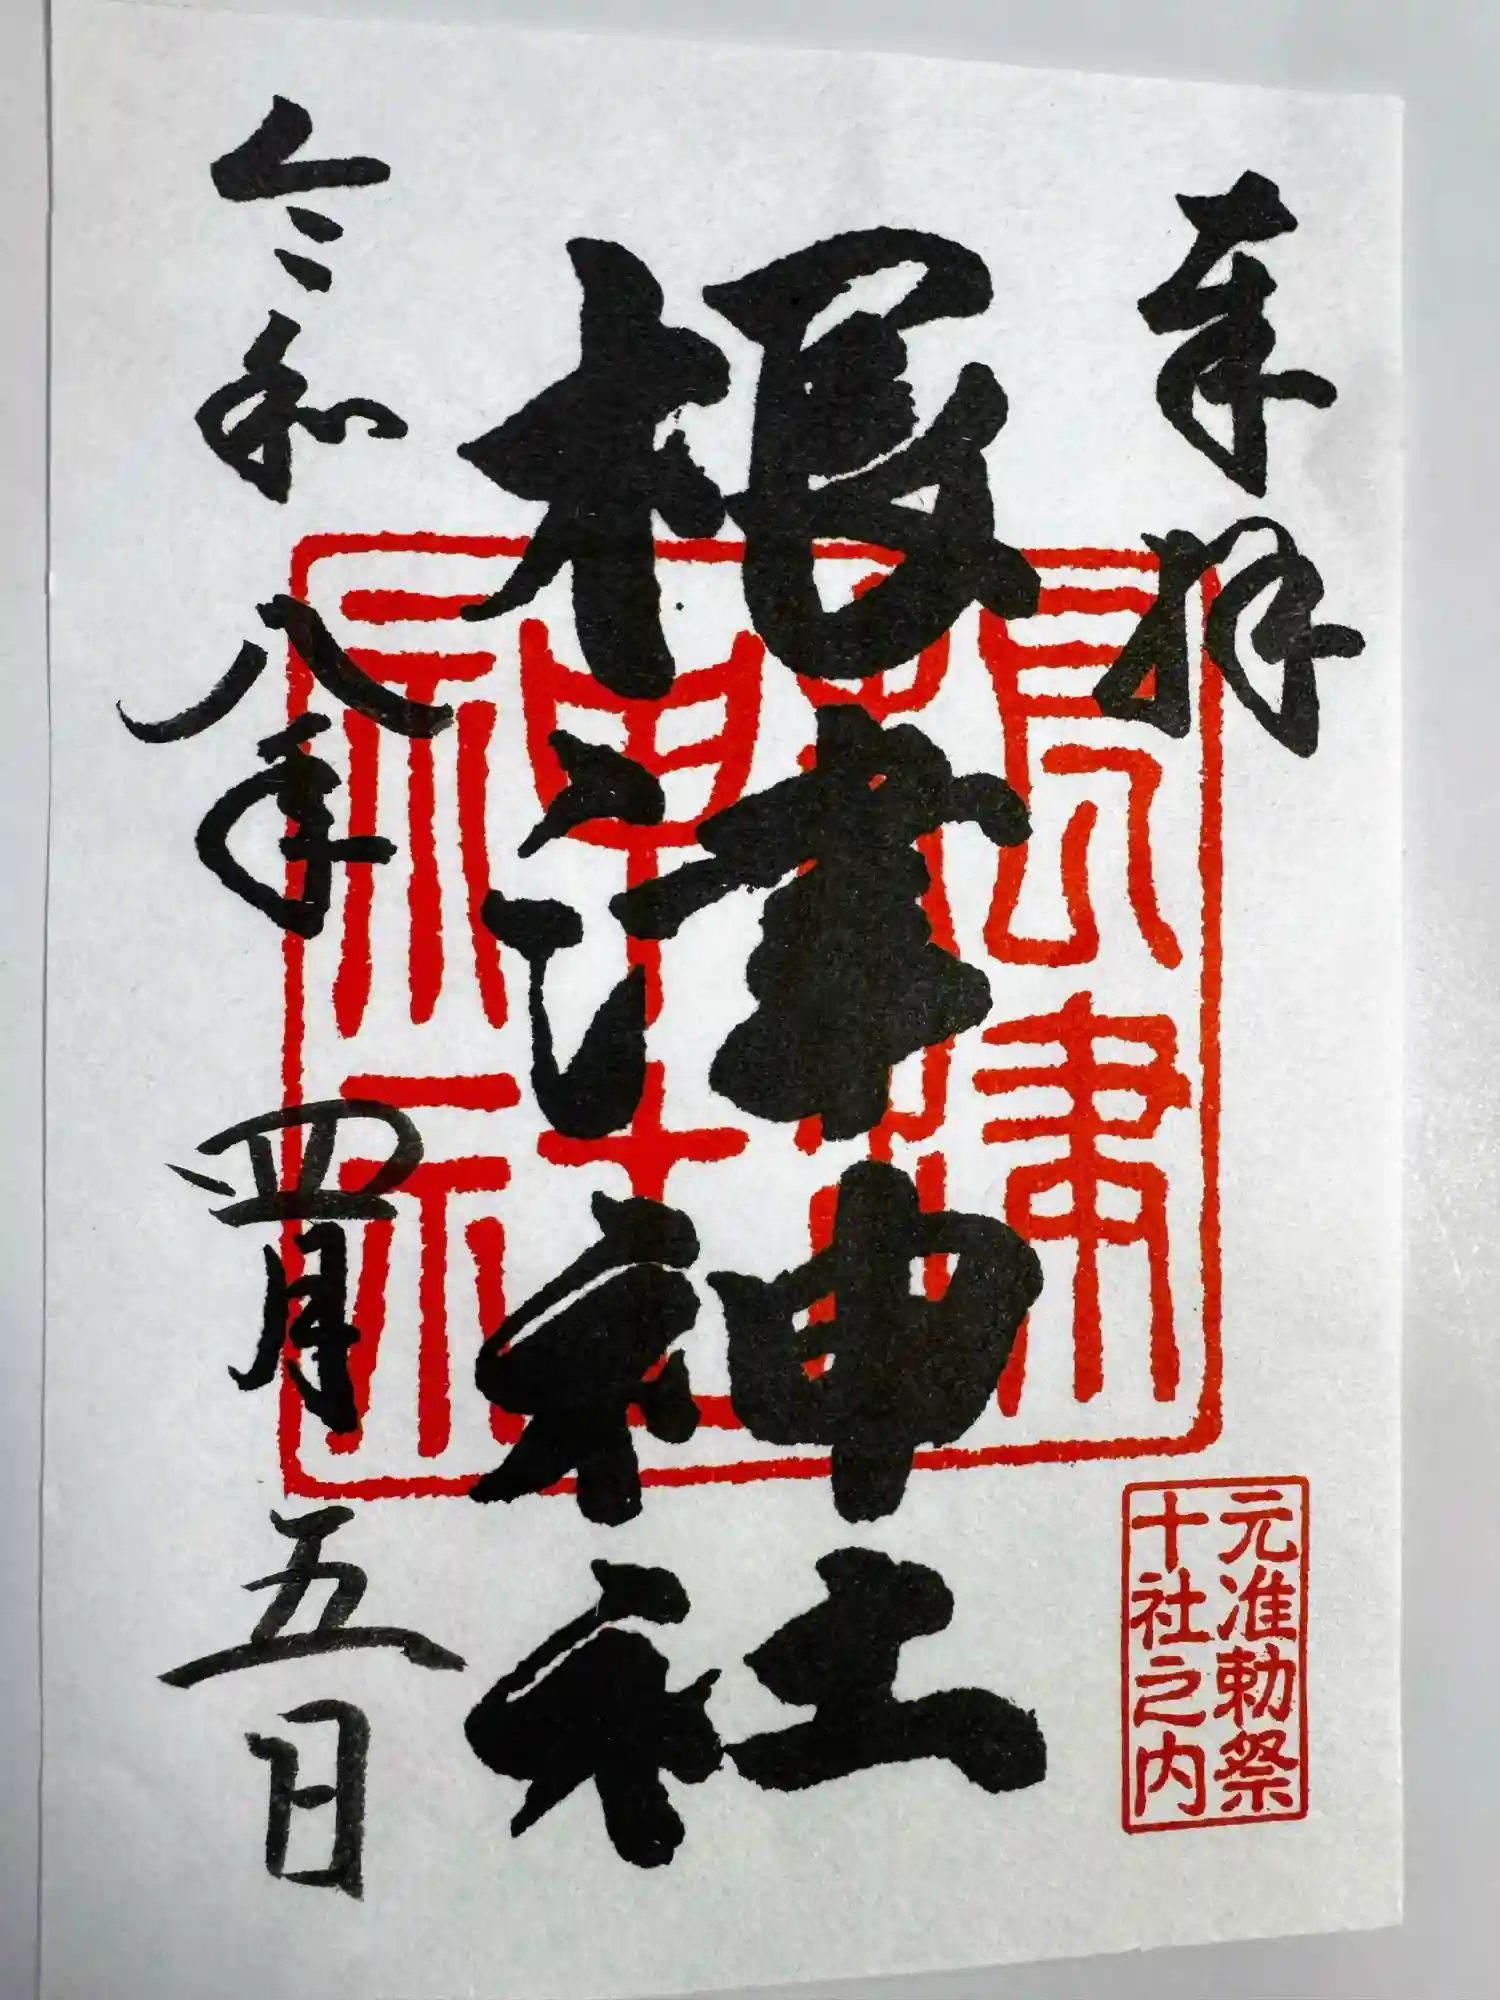 奉拝
根津神社
令和八年四月五日
根津神社
元准勅祭
十社之内